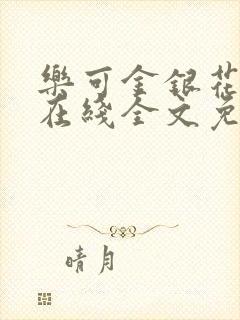 樂可金銀花
在綫全文免
晴月